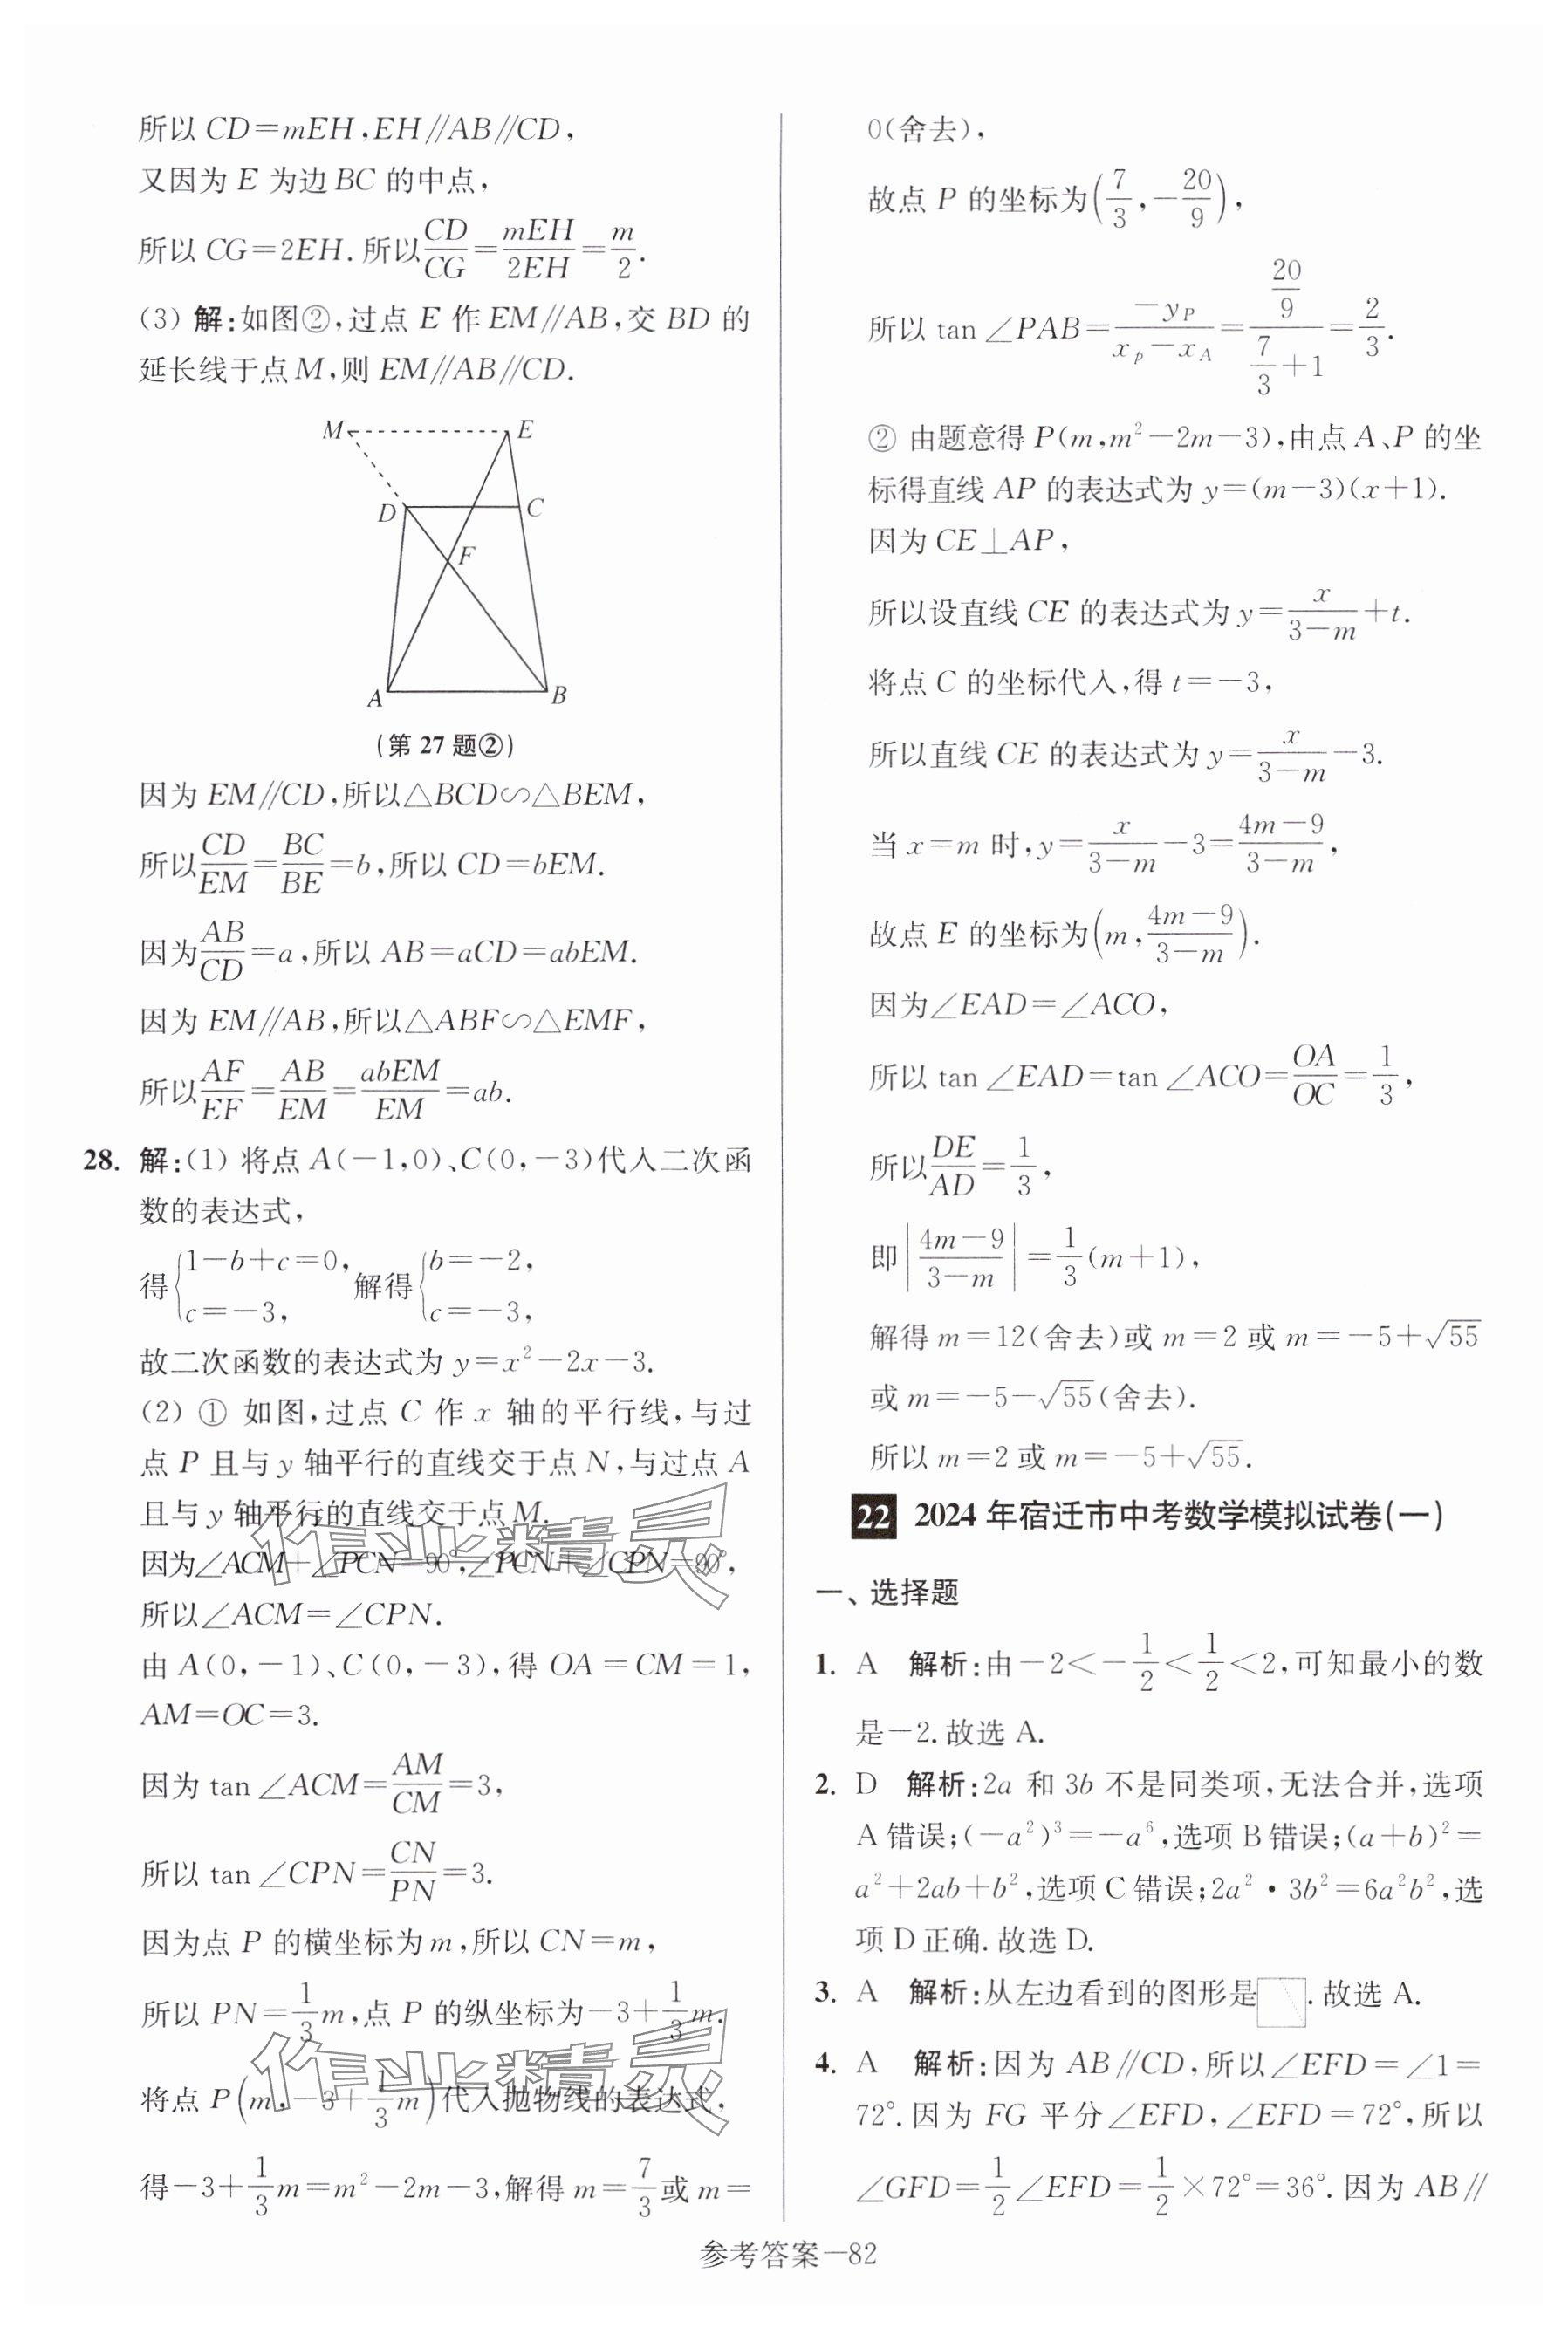 所以 CD=mEH,EH∥AB∥CD,
又因为 E 为边 BC 的中点,
所以 CG=2EH.所以CD/CG=mEH/2EH=m/2.
(3) 解:如图②,过点 E 作 EM∥AB,交 BD 的
延长线于点 M,则 EM∥AB∥CD.
M E
D C
F
A B
(第 27 题②)
因为 EM∥CD,所以△BCD∽△BEM,
所以CD/EM=BC/BE=b,所以 CD=bEM.
因为AB/CD=a,所以 AB=aCD=abEM.
因为 EM∥AB,所以△ABF∽△EMF,
所以AF/EF=AB/EM=abEM/EM=ab.
28. 解:(1) 将点 A(-1,0)、C(0,-3)代入二次函
数的表达式,
得{1-b+c=0, c=-3, 解得{b=-2, c=-3,
故二次函数的表达式为 y=x²-2x-3.
(2) ① 如图,过点 C 作 x 轴的平行线,与过
点 P 且与 y 轴平行的直线交于点 N,与过点 A
且与 y 轴平行的直线交于点 M.
因为∠ACM+∠PCN=90°,∠PCN+∠CPN=90°,
所以∠ACM=∠CPN.
由 A(0,-1)、C(0,-3),得 OA=CM=1,
AM=OC=3.
因为 tan ∠ACM=AM/CM=3,
所以 tan ∠CPN=CN/PN=3.
因为点 P 的横坐标为 m,所以 CN=m,
所以 PN=1/3m,点 P 的纵坐标为-3+1/3m.
将点 P(m,-3+1/3m)代入抛物线的表达式,
得-3+1/3m=m²-2m-3,解得 m=7/3或 m=
0(舍去),
故点 P 的坐标为(7/3,-20/9),
所以 tan ∠PAB=-y_P/(x_p-x_A)=(20/9)/(7/3+1)=2/3.
② 由题意得 P(m,m²-2m-3),由点 A、P 的坐
标得直线 AP 的表达式为 y=(m-3)(x+1).
因为 CE⊥AP,
所以设直线 CE 的表达式为 y=x/(3-m)+t.
将点 C 的坐标代入,得 t=-3,
所以直线 CE 的表达式为 y=x/(3-m)-3.
当 x=m 时,y=x/(3-m)-3=(4m-9)/(3-m),
故点 E 的坐标为(m,(4m-9)/(3-m)).
因为∠EAD=∠ACO,
所以 tan ∠EAD=tan ∠ACO=OA/OC=1/3,
所以DE/AD=1/3,
即|(4m-9)/(3-m)|=1/3(m+1),
解得 m=12(舍去)或 m=2 或 m=-5+√55
或 m=-5-√55(舍去).
所以 m=2 或 m=-5+√55.
22 2024 年宿迁市中考数学模拟试卷(一)
一、选择题
1. A 解析:由-2<-1/2<1/2<2,可知最小的数
是-2.故选 A.
2. D 解析:2a 和 3b 不是同类项,无法合并,选项
A 错误;(-a²)³=-a⁶,选项 B 错误;(a+b)²=
a²+2ab+b²,选项 C 错误;2a²·3b²=6a²b²,选
项 D 正确.故选 D.
3. A 解析:从左边看到的图形是.故选 A.
4. A 解析:因为 AB∥CD,所以∠EFD=∠1=
72°.因为 FG 平分∠EFD,∠EFD=72°,所以
∠GFD=1/2∠EFD=1/2×72°=36°.因为 AB∥
参考答案—82
作业精灵
作业精灵